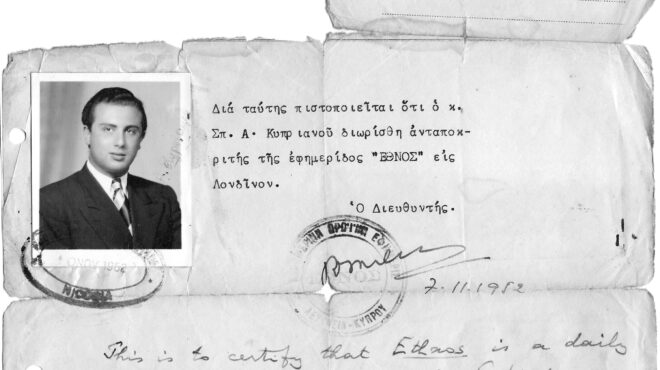 Διά ταύτης πιστοποιεῖται ὅτι ὁ κ.
Σπ. Α. Κυπριανοῦ διωρίσθη ἀνταποκ-
ριτής τῆς ἐφημερίδος "ΕΘΝΟΣ" εἰς
Λονδῖνον.
Ὁ Διευθυντής.
7.11.1952
ΚΥΠΡΟΥ
This is to certify that Ethnos is a daily